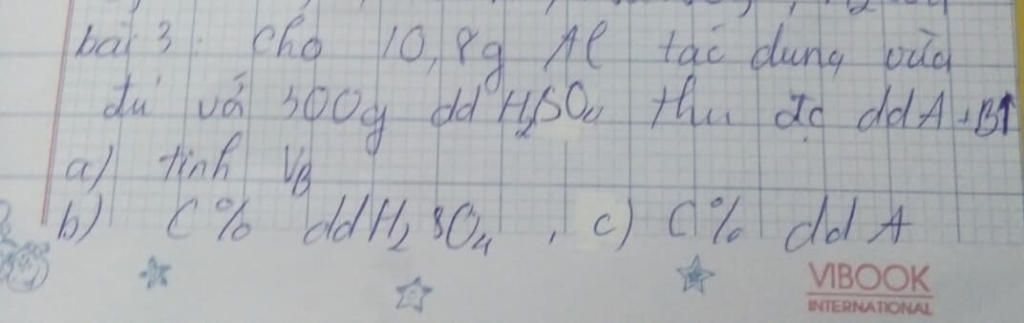 bài 3: Cho 10,8g Al tác dụng vừa
đủ vớ 300g dd H₂SO₄ thu đc dd A + B↑
a) tính V_B
b) C% dd H₂SO₄, c) C% dd A
VIBOOK
INTERNATIONAL